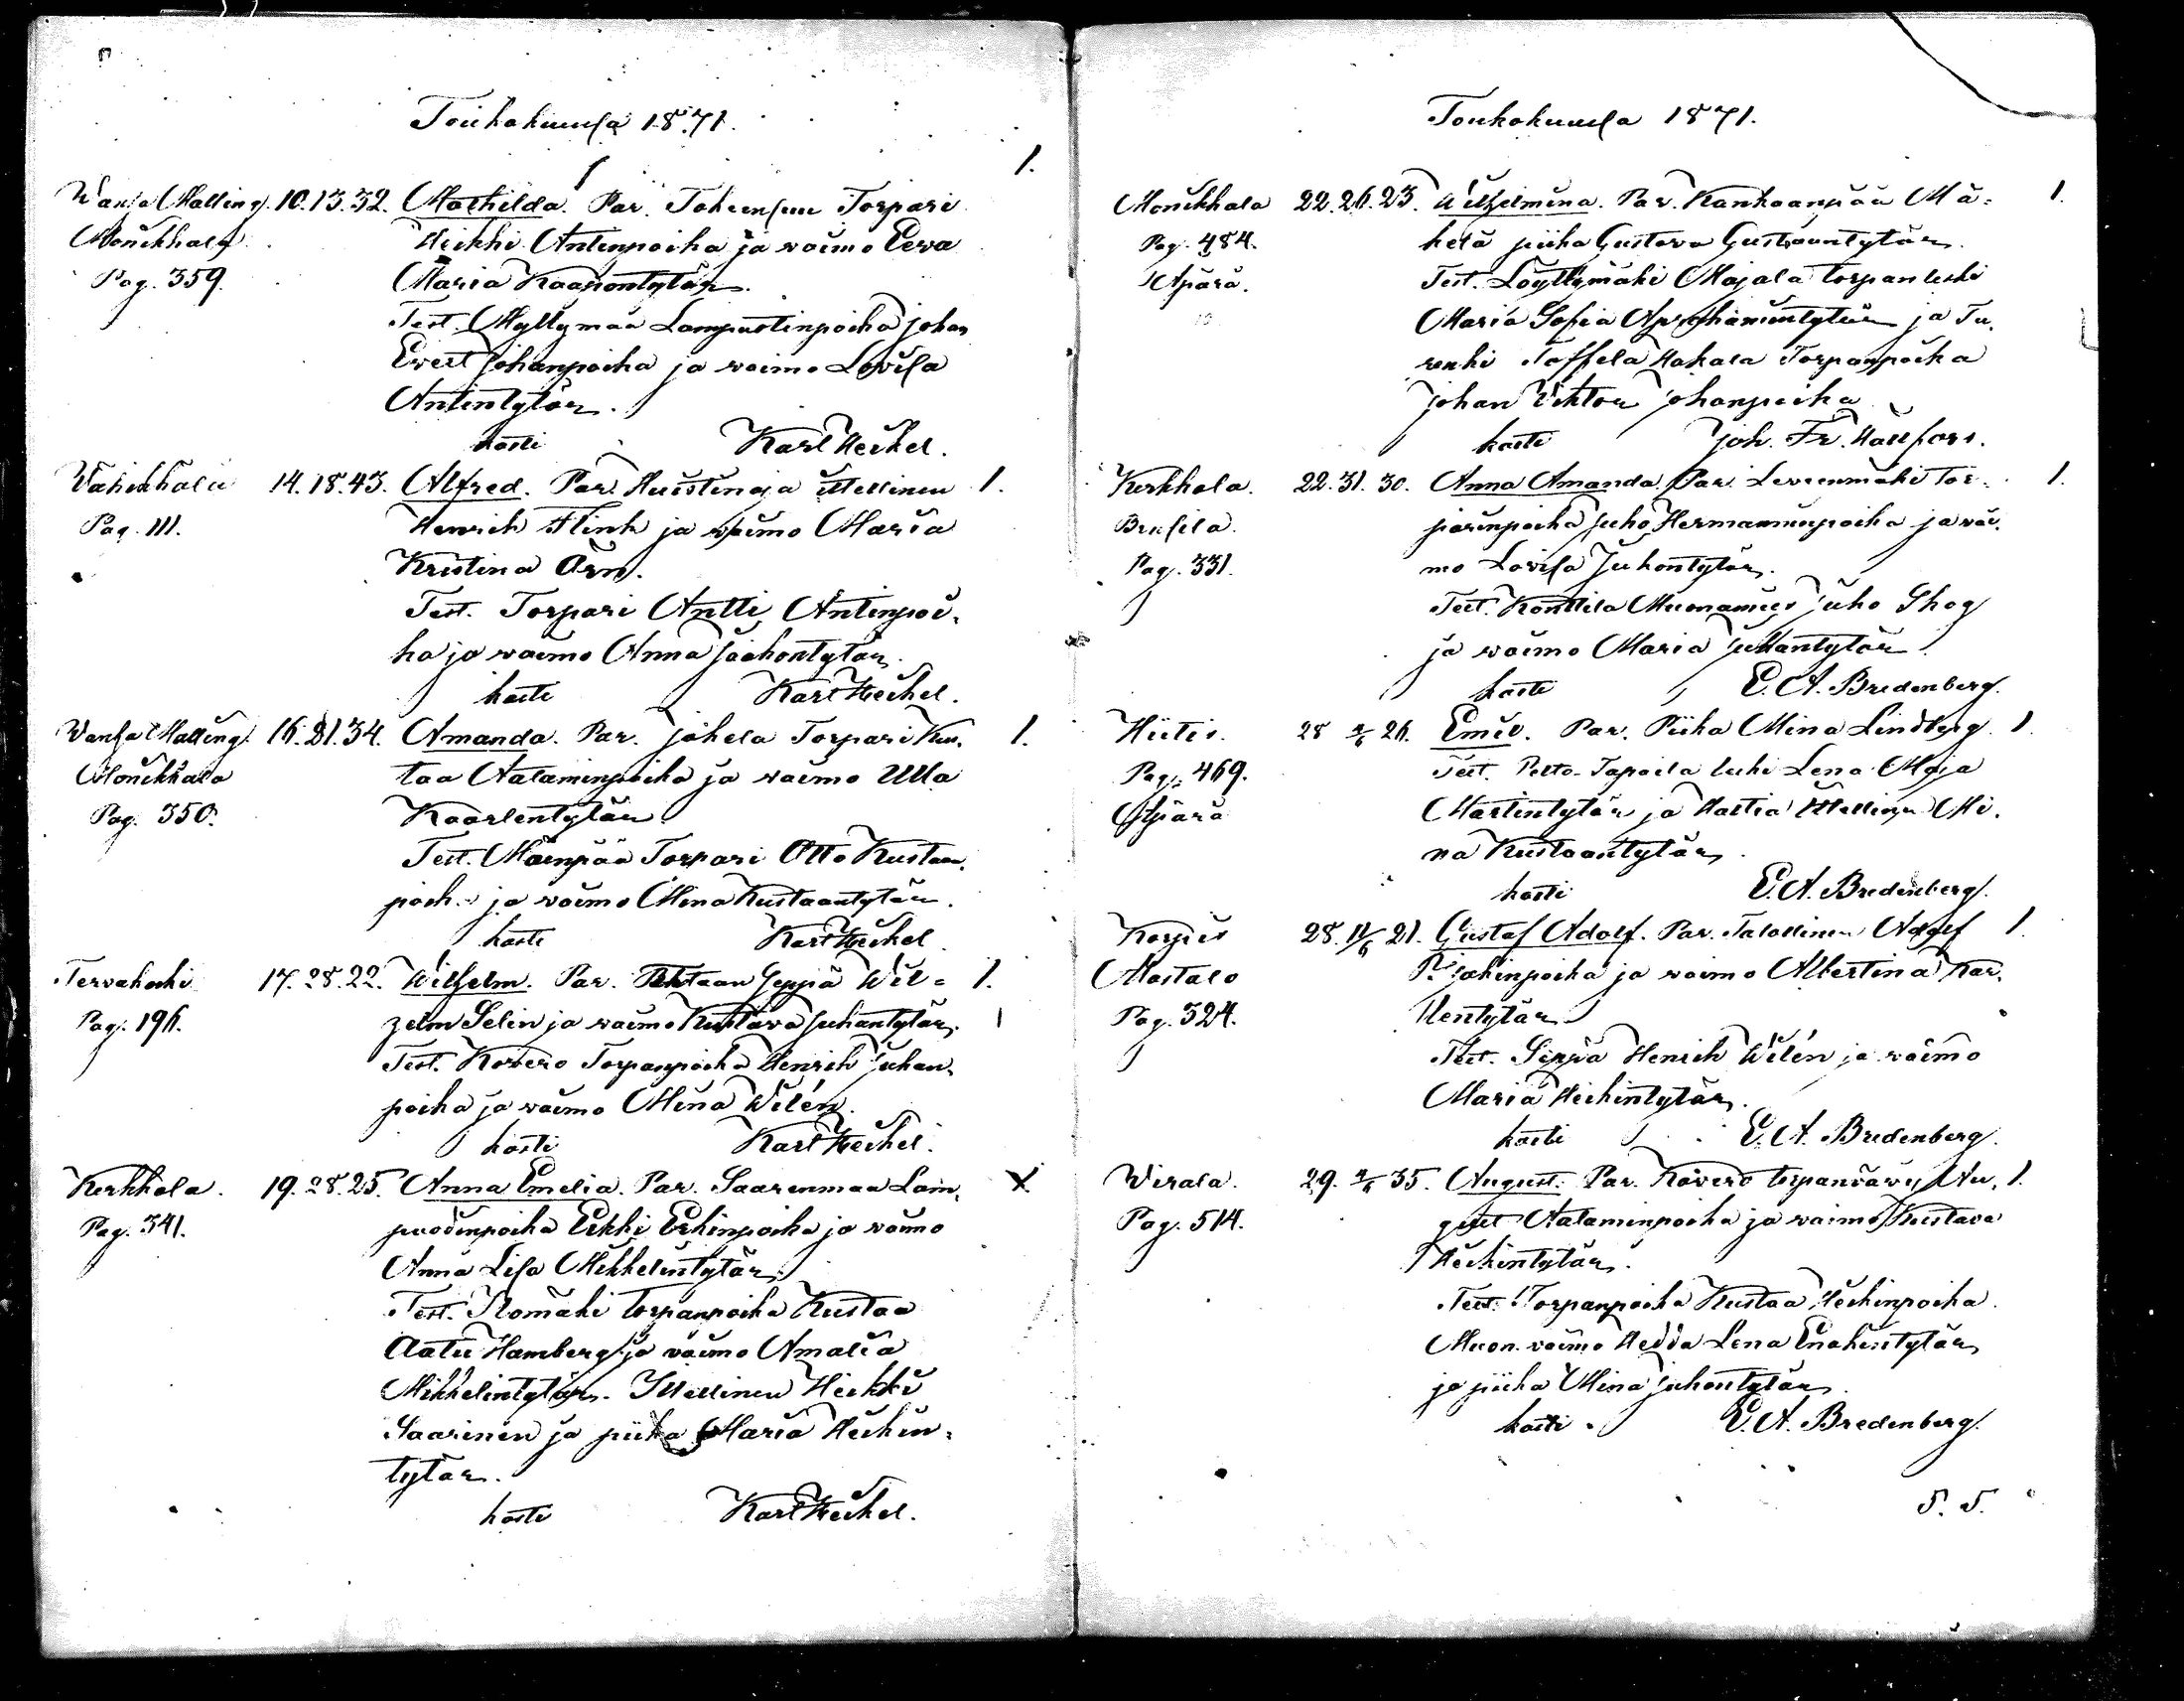 Toukokuusa 1871.
1.
Wanha Malling. 10. 13. 32. Mathilda. Par. Tokeensuu Torpari
Monikkala Heikki Antinpoika ja waimo Eewa
Pag. 359. Maria Kaapontytär.
Test. Myllymaa Lampuotinpoika Johan
Evert Johanpoika ja waimo Lovisa
Antintytär.
kasti Karl Heikel.
Vähikkälä 14. 18. 43. Alfred. Par. Itsellinen 1.
Pag. 111. Henrik Flink ja waimo Maria
Kristina Örn.
Test. Torpari Antti Antinpoi-
ka ja waimo Anna Jaakontytär.
kasti Karl Heikel.
Wanha Malling. 16. 21. 34. Amanda. Par. Jokela Torpari Kus- 1.
Monikkala taa Aataminpoika ja waimo Ulla
Pag. 350. Kaarlentytär
Test. Mäenpää Torpari Otto Kustaan-
poika ja waimo Mina Kustaantytär.
kasti Karl Heikel
Tervakoski 17. 28. 22. Wilhelm. Par. Seppä Wil- 1.
Pag. 196. helm Selin ja waimo Kustava Juhantytär. 1
Test. Kovero Torpanpoika Henrik Juhan-
poika ja waimo Mina Wilén.
kasti Karl Heikel.
Kerkkola. 19. 28. 25. Anna Emelia. Par. Saarenmaa Lam- X
Pag. 341. puodinpoika Erkki Erkinpoika ja waimo
Anna Lisa Mikkelintytär.
Test. Komäki torpanpoika Kustaa
Aatu Hamberg ja waimo Amalia
Mikkelintytär. Itsellinen Heikki
Saarinen ja piika Maria Heikin-
tytär.
kasti Karl Heikel.
Toukokuusa 1871.
Monikkala 22. 26. 23. Wilhelmina. Par. Kankaanpää Mä- 1.
Pag. 484. kelä piika Gustava Gustaantytär.
Äpärä. Test. Löyttymäki Majala torpan leski
Maria Sofia Aprahamintytär ja Tu-
renki Toffela Torpanpoika
Johan Viktor Johanpoika
kasti Joh. Fr. Hällfors.
Kerkkola. 22. 31. 30. Anna Amanda. Par. Leveenmäki Tor- 1.
Brusila. parinpoika Juho Hermanninpoika ja wai-
Pag. 331. mo Lovisa Juhontytär.
Test. Konttila Muonamies Juho Skog
ja waimo Maria Juhantytär
kasti E. A. Bredenberg.
Hiitis. 28 4/6 26. Emil. Par. Piika Mina Lindberg. 1.
Pag. 469. Test. Pelto-Tapaila leski Lena Maja
Äpärä Martintytär ja Hattia Itsellinen Mi-
na Kustaantytär
kasti E. A. Bredenberg.
Korpis 28. 11/6 21. Gustaf Adolf. Par. Talollinen Adolf 1.
Mattalo ja waimo Albertina Kar-
Pag. 324. llentytär
Test. Seppä Henrik Wilén ja waimo
Maria Heikintytär.
kasti E. A. Bredenberg.
Wirala. 29. 4/6 35. August. Par. Kovero torpanvävy Au- 1.
Pag. 514. gust Aataminpoika ja waimo Kustava
Heikintytär.
Test. Torpanpoika Kustaa Heikinpoika
Muon. waimo Hedda Lena Enokintytär
ja piika Mina Juhontytär
kasti E. A. Bredenberg.
5. 5.